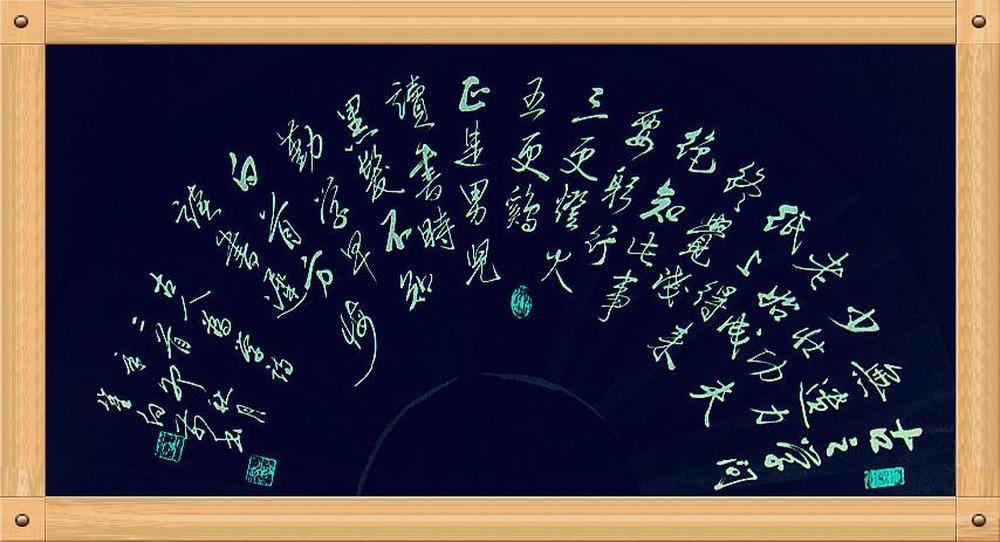 古人學問
無遺力
少壯功夫
老始成
紙上得來
終覺淺
絕知此事
要躬行
三更燈火
五更鷄
正是男兒
讀書時
黑髮不知
勤學早
白首方悔
讀書遲